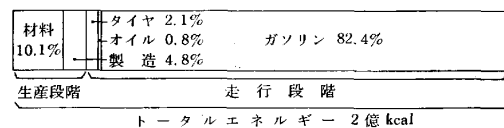 材料
10.1%
タイヤ 2.1%
オイル 0.8%
製造 4.8%
ガソリン 82.4%
生産段階
走行段階
トータルエネルギー 2億kcal